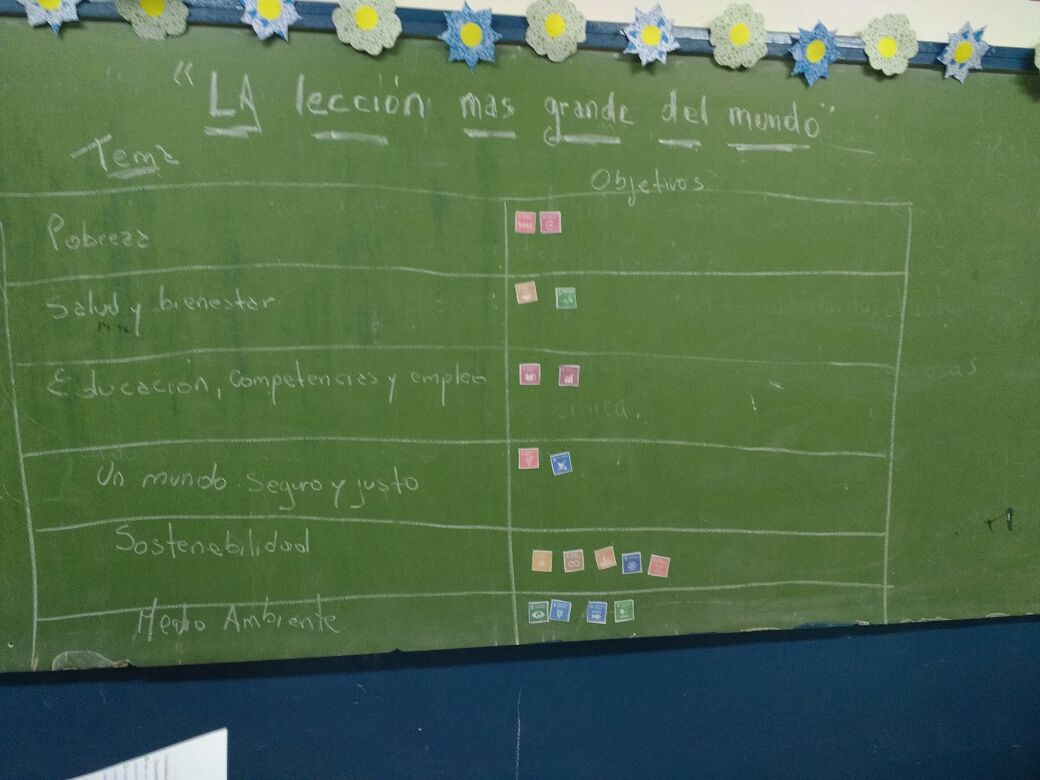 "LA lección mas grande del mundo"
Tema
Objetivos
Pobreza
Salud y bienestar
Educación, competencias y empleo
Un mundo seguro y justo
Sostenebilidad
Medio Ambiente